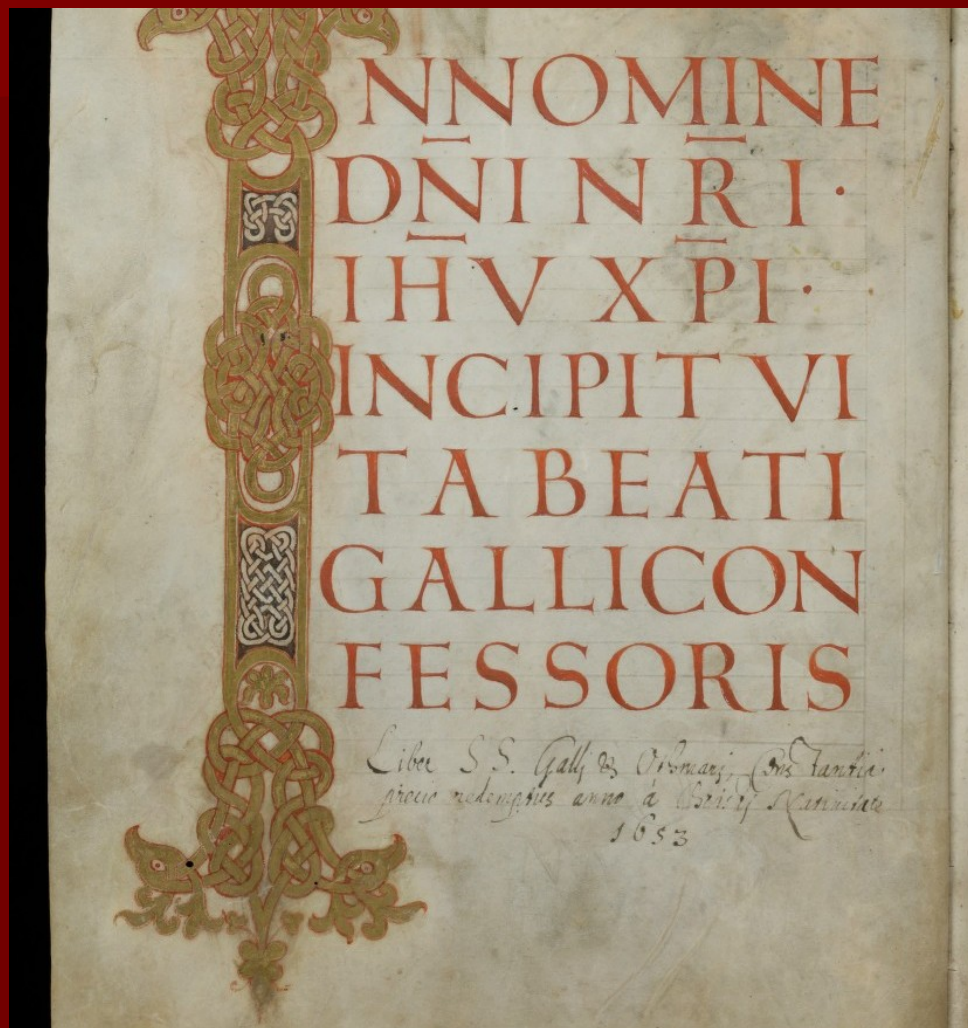 INNOMINE
DN̄I N R̄I ·
IH̄V XP̄I ·
INCIPIT VI
TA BEATI
GALLICON
FESSORIS
Liber S S. Galli & Othmari, Constantia
precio redemptus anno à Christi Nativitate
1653